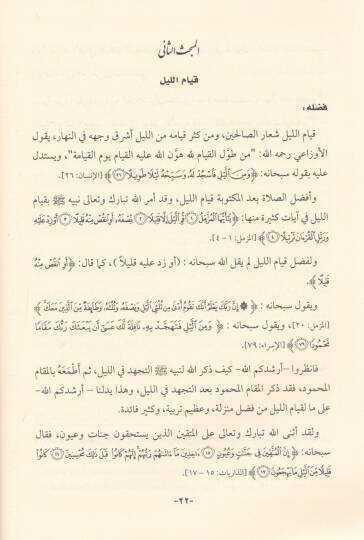 المبحث الثاني
قيام الليل
فضله :
قيام الليل شعار الصالحين، ومن كثر قيامه من الليل أشرق وجهه في النهار، يقول
الأوزاعي رحمه الله: "من طوَّل القيام لله هوَّن الله عليه القيام يوم القيامة"، ويستدل
عليه بقوله سبحانه: ﴿وَمِنَ اللَّيْلِ فَاسْجُدْ لَهُ وَسَبِّحْهُ لَيْلًا طَوِيلًا ﴿٢٦﴾﴾ [الإنسان: ٢٦].
وأفضل الصلاة بعد المكتوبة قيام الليل، وقد أمر الله تبارك وتعالى نبيه ﷺ بقيام
الليل في آيات كثيرة منها: ﴿يَا أَيُّهَا الْمُزَّمِّلُ ﴿١﴾ قُمِ اللَّيْلَ إِلَّا قَلِيلًا ﴿٢﴾ نِصْفَهُ أَوِ انقُصْ مِنْهُ قَلِيلًا ﴿٣﴾ أَوْ زِدْ عَلَيْهِ
وَرَتِّلِ الْقُرْآنَ تَرْتِيلًا ﴿٤﴾﴾ [المزمل: ١ - ٤].
ولفضل قيام الليل لم يقل الله سبحانه : (أو زد عليه قليلاً ) ، كما قال: ﴿أَوِ انقُصْ مِنْهُ
قَلِيلًا﴾.
ويقول سبحانه : ﴿ ۞ إِنَّ رَبَّكَ يَعْلَمُ أَنَّكَ تَقُومُ أَدْنَى مِن ثُلُثَيِ اللَّيْلِ وَنِصْفَهُ وَثُلُثَهُ وَطَائِفَةٌ مِّنَ الَّذِينَ مَعَكَ ﴾
[المزمل: ٢٠]، ويقول سبحانه : ﴿ وَمِنَ اللَّيْلِ فَتَهَجَّدْ بِهِ نَافِلَةً لَّكَ عَسَى أَن يَبْعَثَكَ رَبُّكَ مَقَامًا
مَّحْمُودًا ﴿٧٩﴾﴾ [الإسراء: ٧٩].
فانظروا –أرشدكم الله– كيف ذكر الله لنبيه ﷺ التجهد في الليل، ثم أطْمَعَهُ بالمقام
المحمود، فقد ذكر المقام المحمود بعد التجهد في الليل، وهذا يدلنا – أرشدكم الله–
على ما لقيام الليل من فضل منزلة، وعظيم تربية، وكثير فائدة.
ولقد أثنى الله تبارك وتعالى على المتقين الذين يستحقون جنات وعيون، فقال
سبحانه : ﴿إِنَّ الْمُتَّقِينَ فِي جَنَّاتٍ وَعُيُونٍ ﴿١٥﴾ آخِذِينَ مَا آتَاهُمْ رَبُّهُمْ إِنَّهُمْ كَانُوا قَبْلَ ذَلِكَ مُحْسِنِينَ ﴿١٦﴾ كَانُوا
قَلِيلًا مِّنَ اللَّيْلِ مَا يَهْجَعُونَ ﴿١٧﴾﴾ [الذاريات: ١٥ - ١٧].
-٢٢-